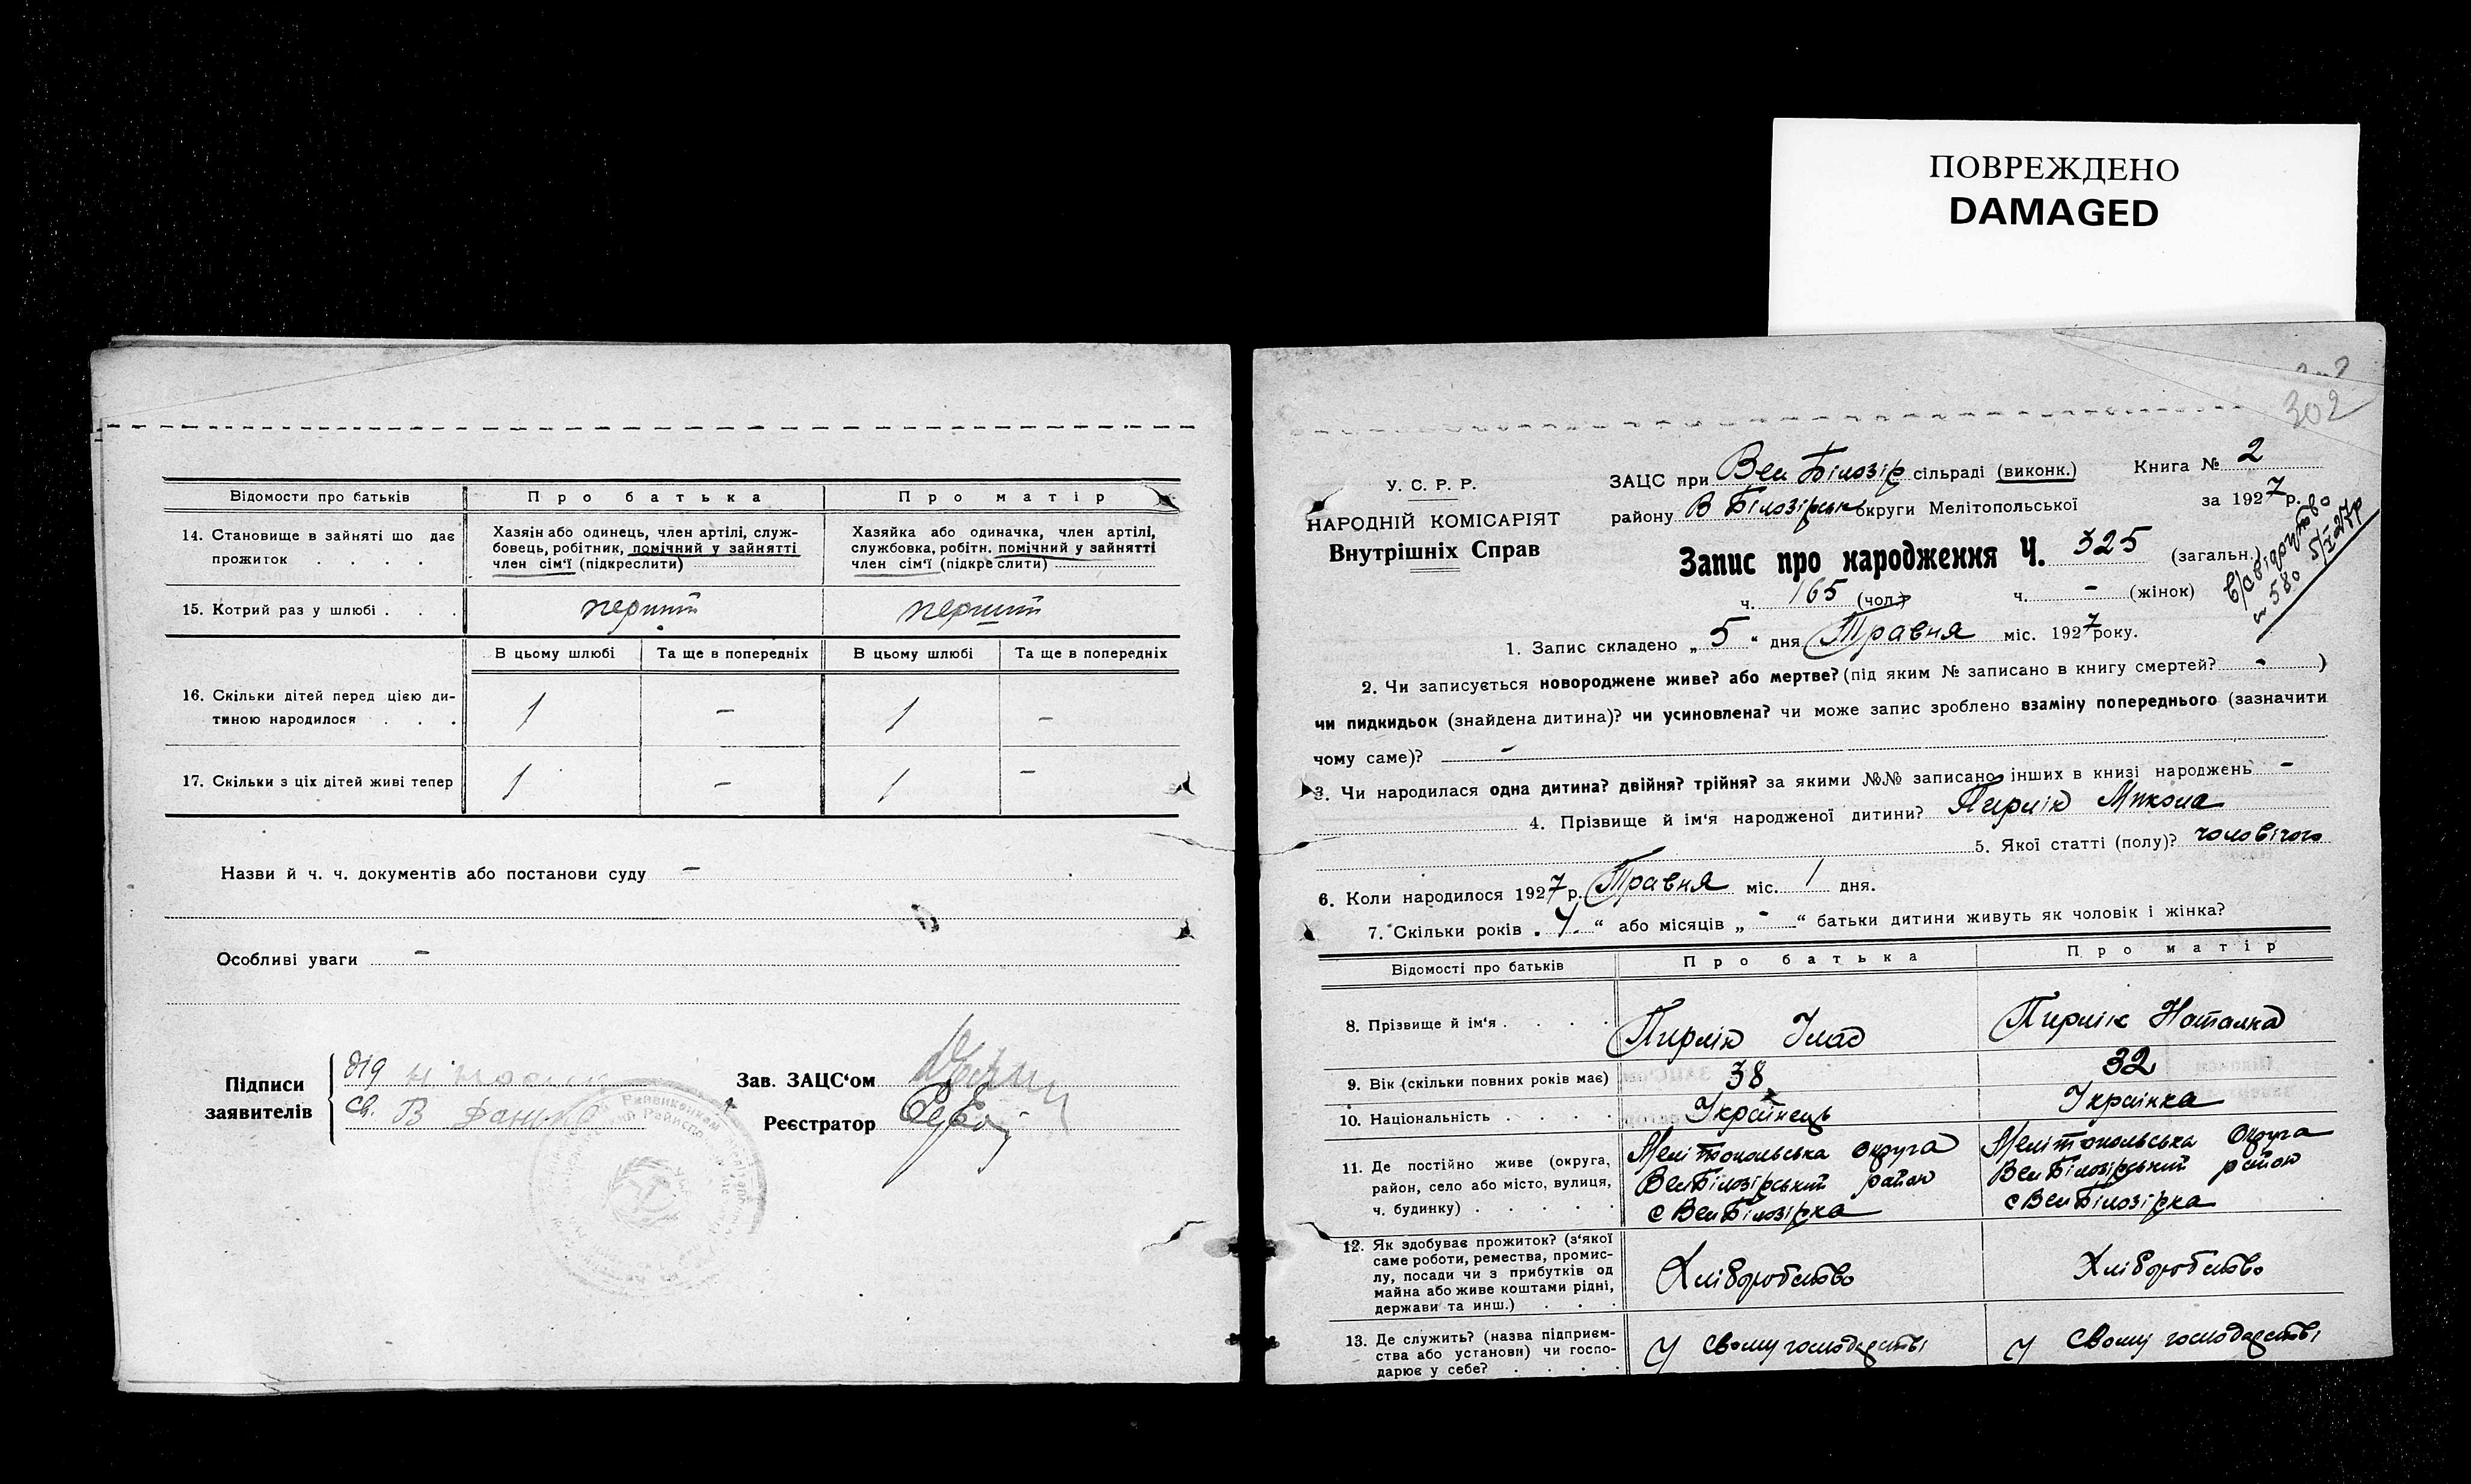 ПОВРЕЖДЕНО
DAMAGED
Відомости про батьків
Про батька
Про матір
14. Становище в зайняті що дає
прожиток . . . .
Хазяїн або одинець, член артілі, служ-
бовець, робітник, помічний у зайнятті
член сім'ї (підкреслити)
Хазяйка або одиначка, член артілі,
службовка, робітн. помічний у зайнятті
член сім'ї (підкреслити)
15. Котрий раз у шлюбі . . .
перший
перший
В цьому шлюбі
Та ще в попередніх
В цьому шлюбі
Та ще в попередніх
16. Скільки дітей перед цією ди-
тиною народилося . . .
1 - 1 -
17. Скільки з ціх дітей живі тепер
1 - 1 -
Назви й ч. ч. документів або постанови суду -
Особливі уваги -
Підписи
заявителів
Св. В
Зав. ЗАЦС'ом
Реєстратор
302
У. С. Р. Р.
НАРОДНІЙ КОМІСАРІЯТ
Внутрішніх Справ
ЗАЦС при Вел Білозір сільраді (виконк.)
Книга № 2
району В Білозірськ округи Мелітопольської
за 1927 р.
Запис про народження Ч. 325 (загальн.)
ч. 165 (чол.) ч. - (жінок)
1. Запис складено „ 5 “ дня Травня міс. 1927 року.
2. Чи записується новороджене живе? або мертве? (під яким № записано в книгу смертей? - )
чи пидкидьок (знайдена дитина)? чи усиновлена? чи може запис зроблено взаміну попереднього (зазначити
чому саме)? -
3. Чи народилася одна дитина? двійня? трійня? за якими №№ записано інших в книзі народжень -
4. Прізвище й ім'я народженої дитини? Пирлік Микола
5. Якої статті (полу)? чоловічого
6. Коли народилося 1927 р. Травня міс. 1 дня.
7. Скільки років “ або місяців „ - “ батьки дитини живуть як чоловік і жінка?
Відомості про батьків
Про батька
Про матір
8. Прізвище й ім'я . . . .
Пирлік Ілас
Пирлік Наталка
9. Вік (скільки повних років має)
38
32
10. Національність . . . .
Українець
Українка
11. Де постійно живе (округа,
район, село або місто, вулиця,
ч. будинку) . . . . .
Мелітопольська округа
Вел Білозірський район
с Вел Білозірка
Мелітопольська Округа
Вел Білозірський район
с Вел Білозірка
12. Як здобуває прожиток? (з'якої
саме роботи, ремества, промис-
лу, посади чи з прибутків од
майна або живе коштами рідні,
держави та инш.) . . .
Хліборобство
Хліборобство
13. Де служить? (назва підприєм-
ства або установи) чи госпо-
дарює у себе? . . . .
У свому господарстві
У свому господарстві